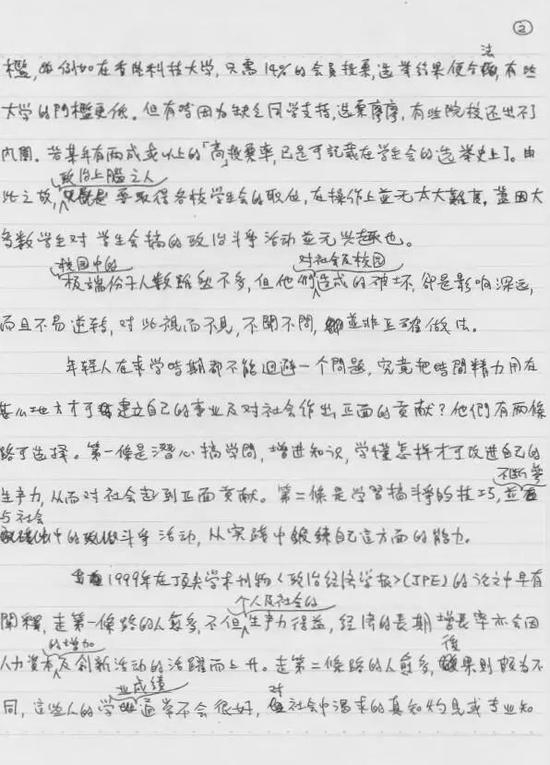 ②
檻，例如在香港科技大学，只需14%的会員投票，选举结果便合法，有些
大学的門檻更低。但有時因为缺乏同学支持，选票寥寥，有些院校还出不了
內閣。若某年有兩成或以上的「高」投票率，已是可記載在学生会的选举史上。由
此之故，政治上腦之人要取得各校学生会的职位，在操作上並无太大難度，蓋因大
多數学生对学生会搞的政治斗爭活动並无兴趣也。
校園中的极端份子人數雖然不多，但他們对社会及校园造成的破坏，卻是影响深远，
而且不易逆转，对此視而不見，不聞不問，並非正確做法。
年轻人在求学時期都不能迴避一个問題，究竟把時間精力用在
甚么地方才可建立自己的事业及对社会作出正面的贡献？他們有兩條
路可选择。第一條是潛心搞学問，增进知识，学懂怎样才可改进自己的
生产力，从而对社会起到正面贡献。第二條是学習搞斗爭的技巧，不断参
与社会中的政治斗爭活动，从实踐中鍛練自己这方面的能力。
1999年在顶尖学术刊物《政治经济学报》(JPE)的论文中早有
闡釋，走第一條路的人愈多，不但个人及社会的生产力得益，经济的長期增長率亦会因
人力資本的增加及创新活动的活躍而上升。走第二條路的人愈多，後果則截为不
同，这些人的学业成绩通常不会很好，对社会中渴求的真知灼見或专业知